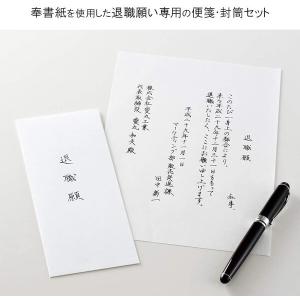 奉書紙を使用した退職願い専用の便箋・封筒セット
退職願
退職願
私事、
このたび一身上の都合により、
来る平成二十九年十二月三十一日をもって
退職いたしたく、ここにお願い申し上げます。
平成二十九年十一月一日
マーケティング部 販売促進課
田中 新一
株式会社愛九工業
代表取締役 愛九 和夫 殿